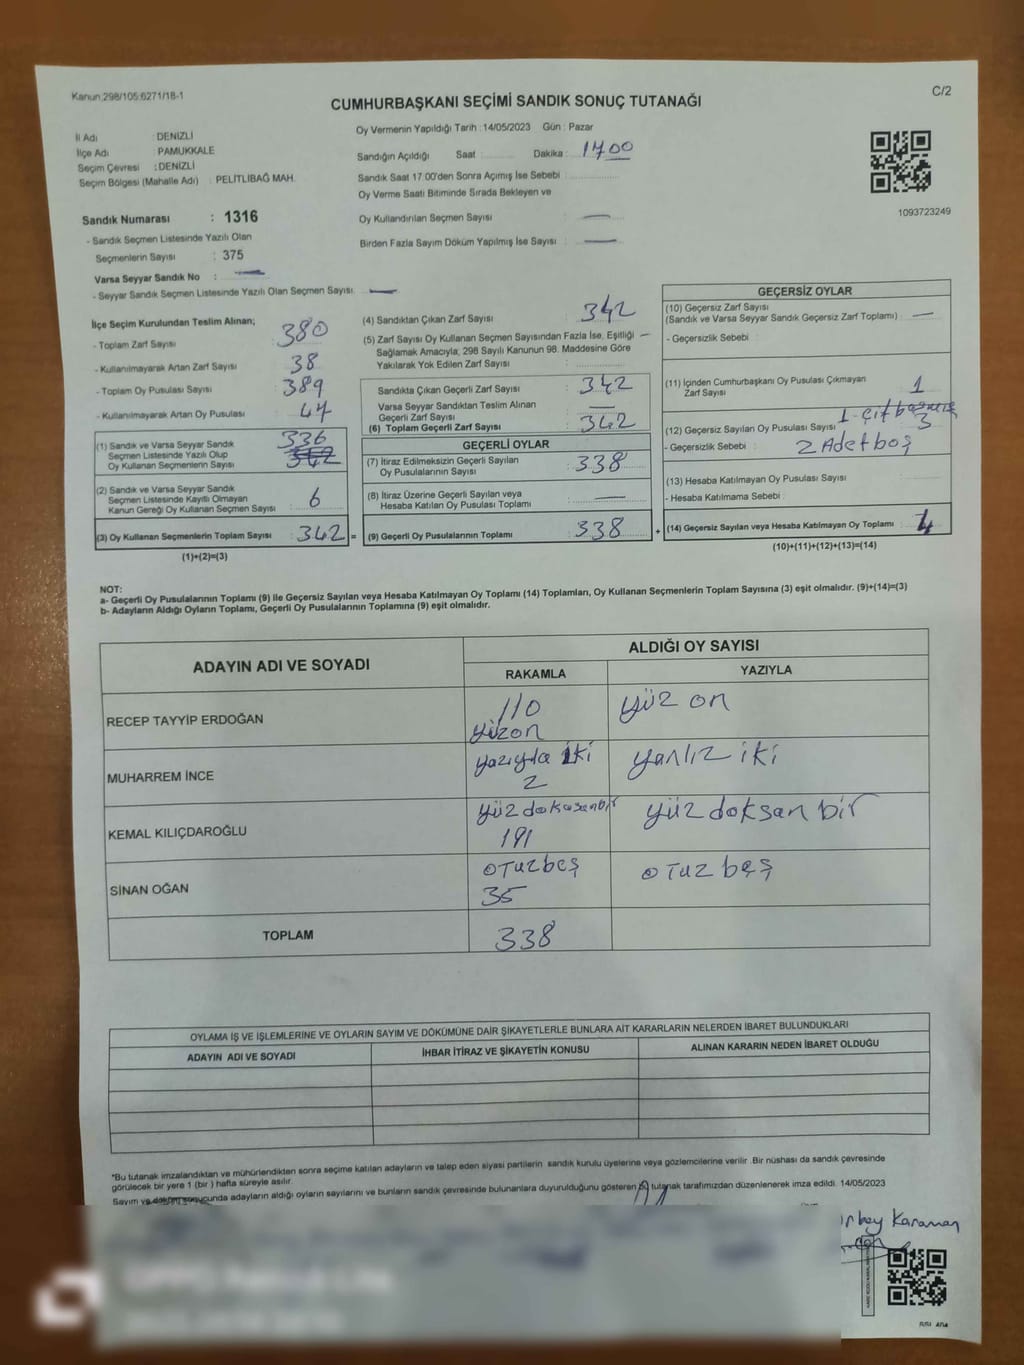 Kanun;298/105;6271/18-1
C/2
CUMHURBAŞKANI SEÇİMİ SANDIK SONUÇ TUTANAĞI
İl Adı : DENİZLİ
İlçe Adı : PAMUKKALE
Seçim Çevresi : DENİZLİ
Seçim Bölgesi (Mahalle Adı) : PELİTLİBAĞ MAH.
Sandık Numarası : 1316
- Sandık Seçmen Listesinde Yazılı Olan
Seçmenlerin Sayısı : 375
Varsa Seyyar Sandık No : —
- Seyyar Sandık Seçmen Listesinde Yazılı Olan Seçmen Sayısı —
Oy Vermenin Yapıldığı Tarih :14/05/2023 Gün : Pazar
Sandığın Açıldığı Saat : Dakika : 1700
Sandık Saat 17:00'den Sonra Açımış İse Sebebi :
Oy Verme Saati Bitiminde Sırada Bekleyen ve
Oy Kullandırılan Seçmen Sayısı : —
Birden Fazla Sayım Döküm Yapılmış İse Sayısı : —
1093723249
İlçe Seçim Kurulundan Teslim Alınan;
- Toplam Zarf Sayısı 380
- Kullanılmayarak Artan Zarf Sayısı 38
- Toplam Oy Pusulası Sayısı 389
- Kullanılmayarak Artan Oy Pusulası 47
(1) Sandık ve Varsa Seyyar Sandık
Seçmen Listesinde Yazılı Olup
Oy Kullanan Seçmenlerin Sayısı 336 342
(2) Sandık ve Varsa Seyyar Sandık
Seçmen Listesinde Kayıtlı Olmayan
Kanun Gereği Oy Kullanan Seçmen Sayısı : 6
(3) Oy Kullanan Seçmenlerin Toplam Sayısı : 342 =
(1)+(2)=(3)
(4) Sandıktan Çıkan Zarf Sayısı : 342
(5) Zarf Sayısı Oy Kullanan Seçmen Sayısından Fazla İse, Eşitliği —
Sağlamak Amacıyla; 298 Sayılı Kanunun 98. Maddesine Göre
Yakılarak Yok Edilen Zarf Sayısı :
Sandıkta Çıkan Geçerli Zarf Sayısı : 342
Varsa Seyyar Sandıktan Teslim Alınan
Geçerli Zarf Sayısı : —
(6) Toplam Geçerli Zarf Sayısı : 342
GEÇERLİ OYLAR
(7) İtiraz Edilmeksizin Geçerli Sayılan
Oy Pusulalarının Sayısı : 338
(8) İtiraz Üzerine Geçerli Sayılan veya
Hesaba Katılan Oy Pusulası Toplamı : —
(9) Geçerli Oy Pusulalarının Toplamı : 338 +
GEÇERSİZ OYLAR
(10) Geçersiz Zarf Sayısı
(Sandık ve Varsa Seyyar Sandık Geçersiz Zarf Toplamı) : —
- Geçersizlik Sebebi :
(11) İçinden Cumhurbaşkanı Oy Pusulası Çıkmayan
Zarf Sayısı : 1
(12) Geçersiz Sayılan Oy Pusulası Sayısı : 1- Çift 3
- Geçersizlik Sebebi : 2 Adet boş
(13) Hesaba Katılmayan Oy Pusulası Sayısı :
- Hesaba Katılmama Sebebi :
(14) Geçersiz Sayılan veya Hesaba Katılmayan Oy Toplamı : 4
(10)+(11)+(12)+(13)=(14)
NOT:
a- Geçerli Oy Pusulalarının Toplamı (9) ile Geçersiz Sayılan veya Hesaba Katılmayan Oy Toplamı (14) Toplamları, Oy Kullanan Seçmenlerin Toplam Sayısına (3) eşit olmalıdır. (9)+(14)=(3)
b- Adayların Aldığı Oyların Toplamı, Geçerli Oy Pusulalarının Toplamına (9) eşit olmalıdır.
ADAYIN ADI VE SOYADI
ALDIĞI OY SAYISI
RAKAMLA YAZIYLA
RECEP TAYYİP ERDOĞAN 110 yüzon yüz on
MUHARREM İNCE yazıyla iki 2 yanlız iki
KEMAL KILIÇDAROĞLU yüz doksanbir 191 yüz doksan bir
SİNAN OĞAN otuzbeş 35 otuz beş
TOPLAM 338
OYLAMA İŞ VE İŞLEMLERİNE VE OYLARIN SAYIM VE DÖKÜMÜNE DAİR ŞİKAYETLERLE BUNLARA AİT KARARLARIN NELERDEN İBARET BULUNDUKLARI
ADAYIN ADI VE SOYADI İHBAR İTİRAZ VE ŞİKAYETİN KONUSU ALINAN KARARIN NEDEN İBARET OLDUĞU
*Bu tutanak imzalandıktan ve mühürlendikten sonra seçime katılan adayların ve talep eden siyasi partilerin sandık kurulu üyelerine veya gözlemcilerine verilir. Bir nüshası da sandık çevresinde
görülecek bir yere 1 (bir ) hafta süreyle asılır.
Sayım ve döküm sonucunda adayların aldığı oyların sayılarını ve bunların sandık çevresinde bulunanlara duyurulduğunu gösteren bu tutanak tarafımızdan düzenlenerek imza edildi. 14/05/2023
Karaman